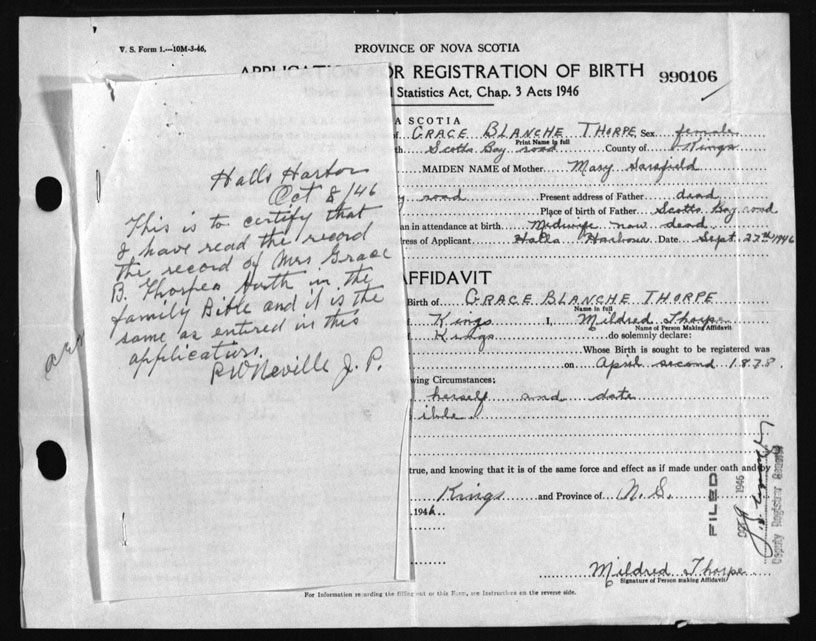 V. S. Form 1.—10M-3-46,
PROVINCE OF NOVA SCOTIA
APPLICATION FOR REGISTRATION OF BIRTH
990106
Statistics Act, Chap. 3 Acts 1946
A SCOTIA
of GRACE BLANCHE THORPE Sex female
Print Name in full
th Scotts Bay road County of Kings
MAIDEN NAME of Mother. Mary Sarsfield
y road Present address of Father dead
Place of birth of Father. Scotts Bay road
an in attendance at birth Midwife now dead
ress of Applicant Halls Harbour Date Sept. 27th 1946
AFFIDAVIT
Birth of GRACE BLANCHE THORPE
Name in full
Kings I, Mildred Thorpe
Name of Person Making Affidavit
Kings do solemnly declare:
Whose Birth is sought to be registered was
on April second 1878.
wing Circumstances;
herself and date
ible.
true, and knowing that it is of the same force and effect as if made under oath and by
Kings and Province of N. S.
1946
Mildred Thorpe
Signature of Person making Affidavit
For Information regarding the filling out or this Form, see Instructions on the reverse side.
Halls Harbor
Oct 8/46
This is to certify that
I have read the record
the record of Mrs Grace
B. Thorpes birth in the
family Bible and it is the
same as entered in this
application.
R W Neville J. P.
FILED
1946
Deputy Registrar General